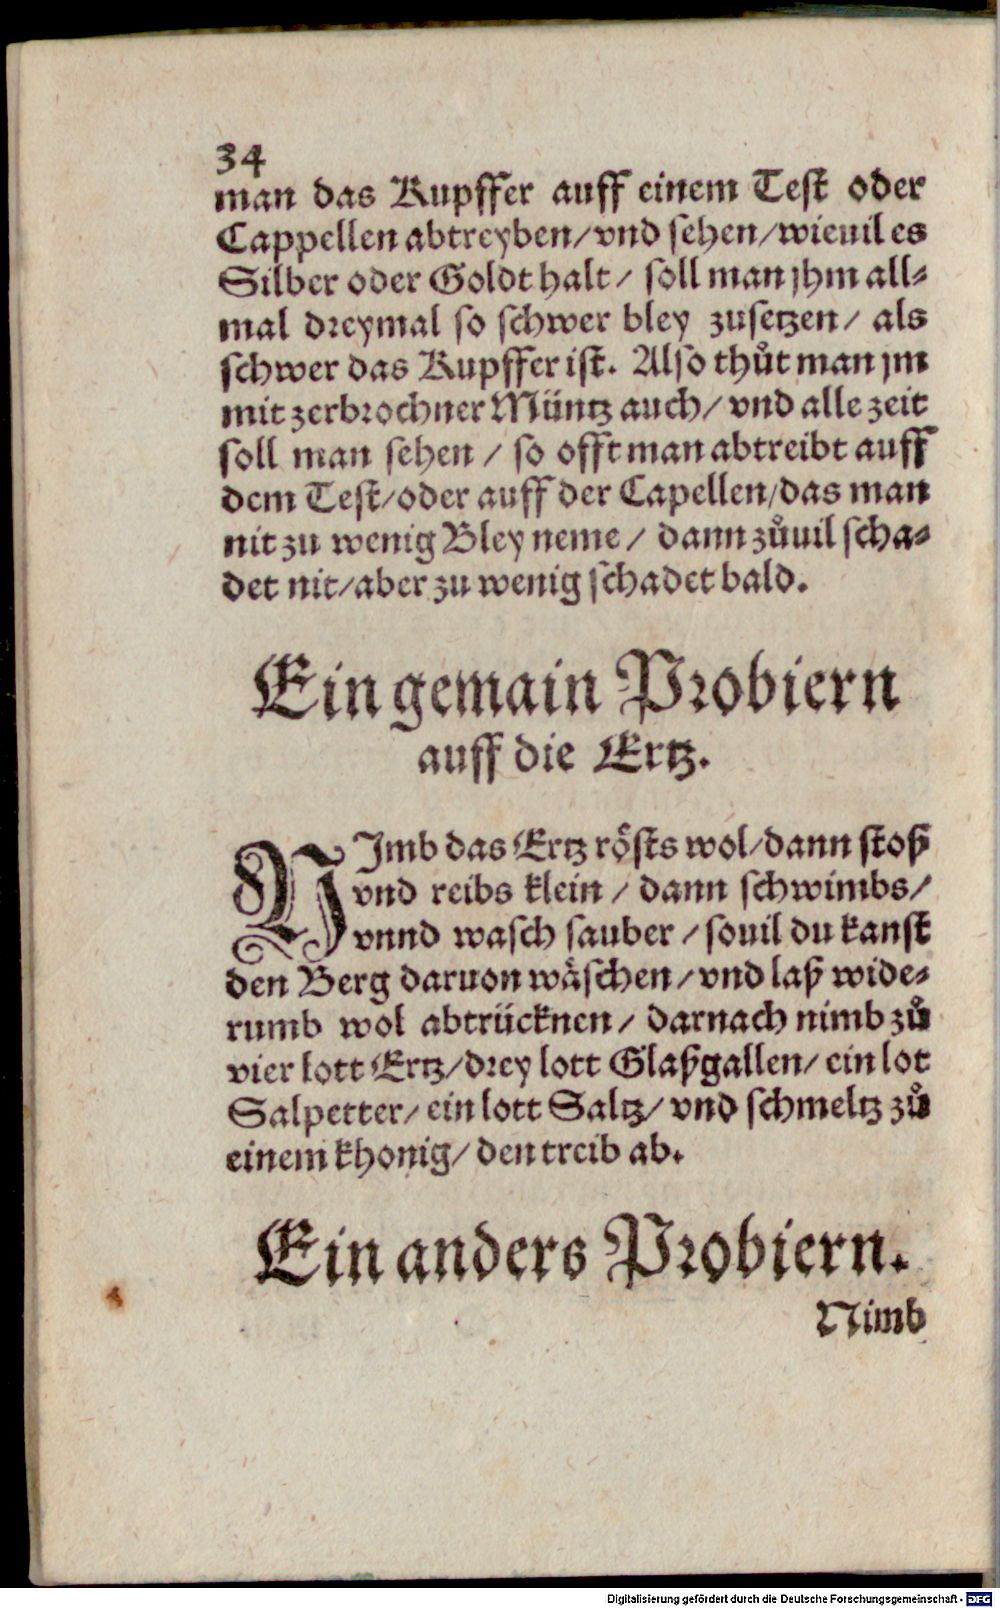 34
man das Kupffer auff einem Test oder
Cappellen abtreyben/vnd sehen/wieuil es
Silber oder Goldt halt/ soll man jhm all⸗
mal dreymal so schwer bley zusetzen/ als
schwer das Kupffer ist. Also thůt man jm
mit zerbrochner Müntz auch/ vnd alle zeit
soll man sehen/ so offt man abtreibt auff
dem Test/oder auff der Capellen/das man
nit zu wenig Bley neme/ dann zůuil scha⸗
det nit/aber zu wenig schadet bald.
Ein gemain Probiern
auff die Ertz.
NJmb das Ertz röſts wol/dann stoß
vnd reibs klein/ dann schwimbs/
vnnd wasch sauber/ souil du kanst
den Berg daruon wäschen/vnd laß wide⸗
rumb wol abtrücknen/ darnach nimb zů
vier lott Ertz/drey lott Glaßgallen/ ein lot
Salpetter/ ein lott Saltz/ vnd schmeltz zů
einem khonig/ den treib ab.
Ein anders Probiern.
Nimb
Digitalisierung gefördert durch die Deutsche Forschungsgemeinschaft - DFG